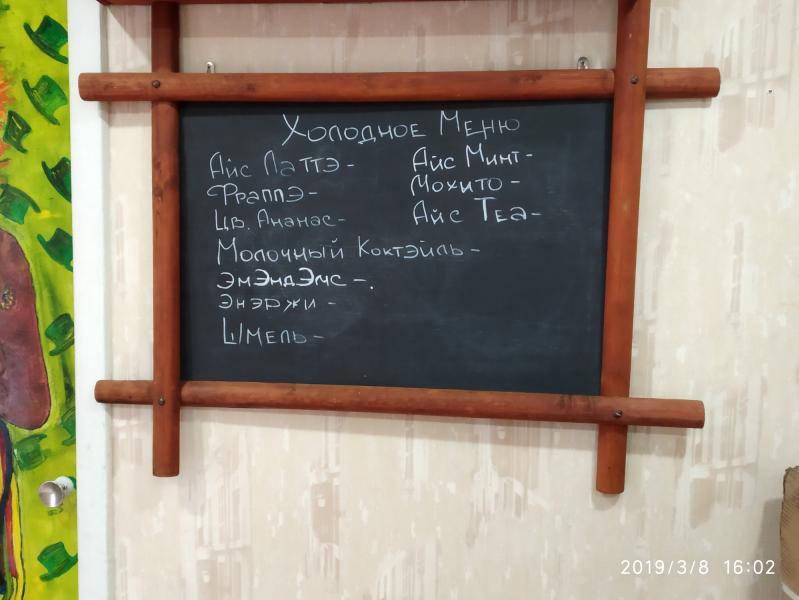 Холодное Меню
Айс Латтэ -
Фраппэ -
Цв. Ананас -
Молочный Коктэйль -
ЭмЭндЭмс -.
Энэржи -
Шмель -
Айс Минт -
Мохито -
Айс Теа -
2019/3/8 16:02